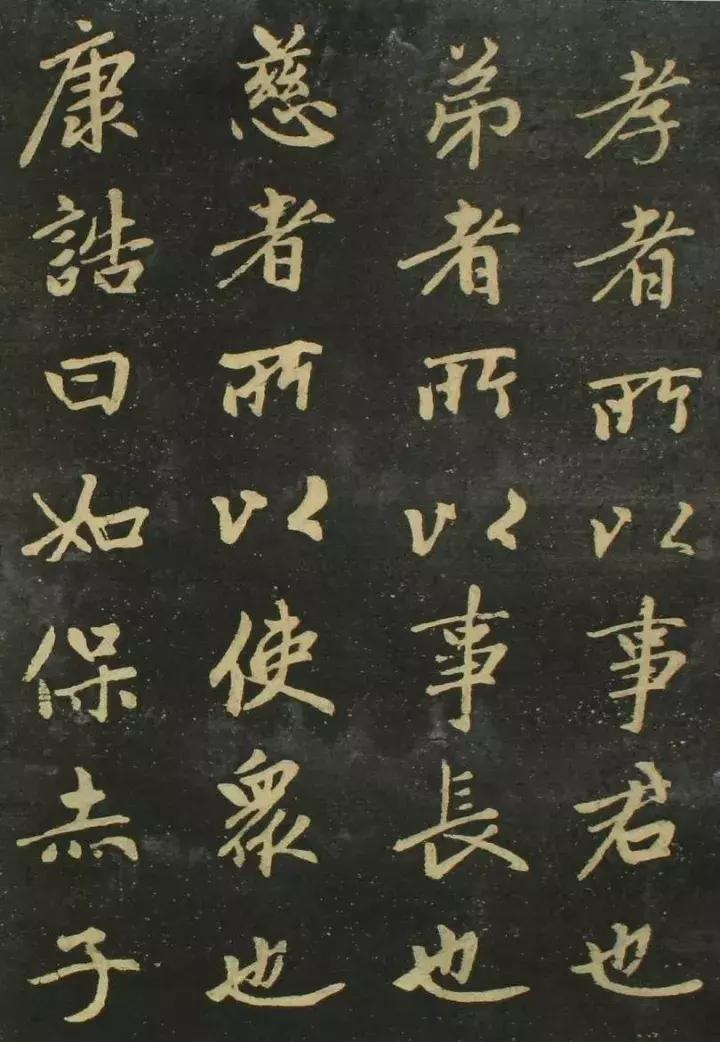 孝者所以事君也
弟者所以事長也
慈者所以使衆也
康誥曰如保赤子